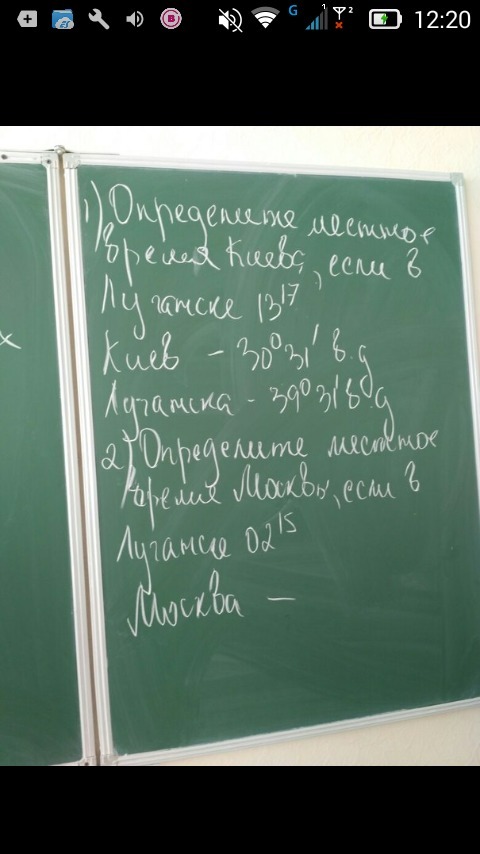 G 1 2 12:20
1) Определите местное
время Киева, если в
Луганске 13¹⁷
Киев - 30⁰31' в.д
Луганска - 39⁰31' в.д
2) Определите местное
время Москвы, если в
Луганске 02¹⁵
Москва —
х